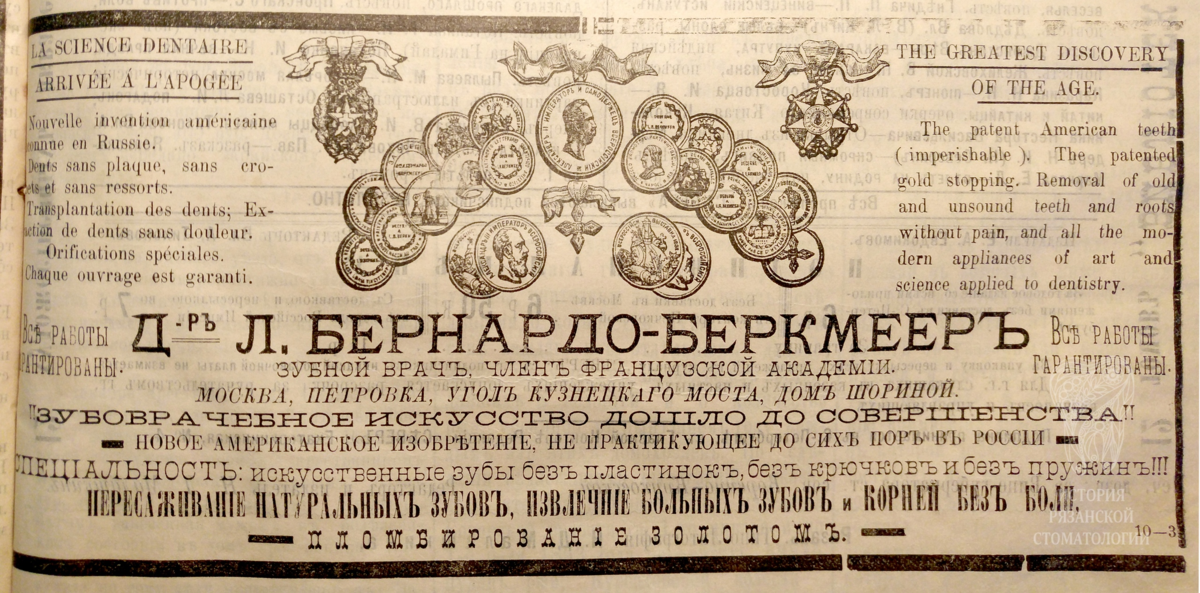 LA SCIENCE DENTAIRE
ARRIVÉE Á L'APOGÉE
Nouvelle invention américaine
connue en Russie.
Dents sans plaque, sans cro-
ets et sans ressorts.
Transplantation des dents; Ex-
action de dents sans douleur.
Orifications spéciales.
Chaque ouvrage est garanti.
THE GREATEST DISCOVERY
OF THE AGE.
The patent American teeth
(imperishable). The patented
gold stopping. Removal of old
and unsound teeth and roots
without pain, and all the mo-
dern appliances of art and
science applied to dentistry.
ВСѢ РАБОТЫ
РАНТИРОВАНЫ.
Д-РЪ Л. БЕРНАРДО-БЕРКМЕЕРЪ
ВСѢ РАБОТЫ
ГАРАНТИРОВАНЫ.
ЗУБНОЙ ВРАЧЪ, ЧЛЕНЪ ФРАНЦУЗСКОЙ АКАДЕМІИ.
МОСКВА, ПЕТРОВКА, УГОЛЪ КУЗНЕЦКАГО МОСТА, ДОМЪ ШОРИНОЙ.
!!ЗУБОВРАЧЕБНОЕ ИСКУССТВО ДОШЛО ДО СОВЕРШЕНСТВА!!
НОВОЕ АМЕРИКАНСКОЕ ИЗОБРѢТЕНІЕ, НЕ ПРАКТИКУЮЩЕЕ ДО СИХЪ ПОРЪ ВЪ РОССІИ
СПЕЦІАЛЬНОСТЬ: искусственные зубы безъ пластинокъ, безъ крючковъ и безъ пружинъ!!!
ПЕРЕСАЖИВАНІЕ НАТУРАЛЬНЫХЪ ЗУБОВЪ, ИЗВЛЕЧНІЕ БОЛЬНЫХЪ ЗУБОВЪ и КОРНЕЙ БЕЗЪ БОЛИ,
ПЛОМБИРОВАНІЕ ЗОЛОТОМЪ.
10—3
ИСТОРИЯ
РЯЗАНСКОЙ
СТОМАТОЛОГИИ